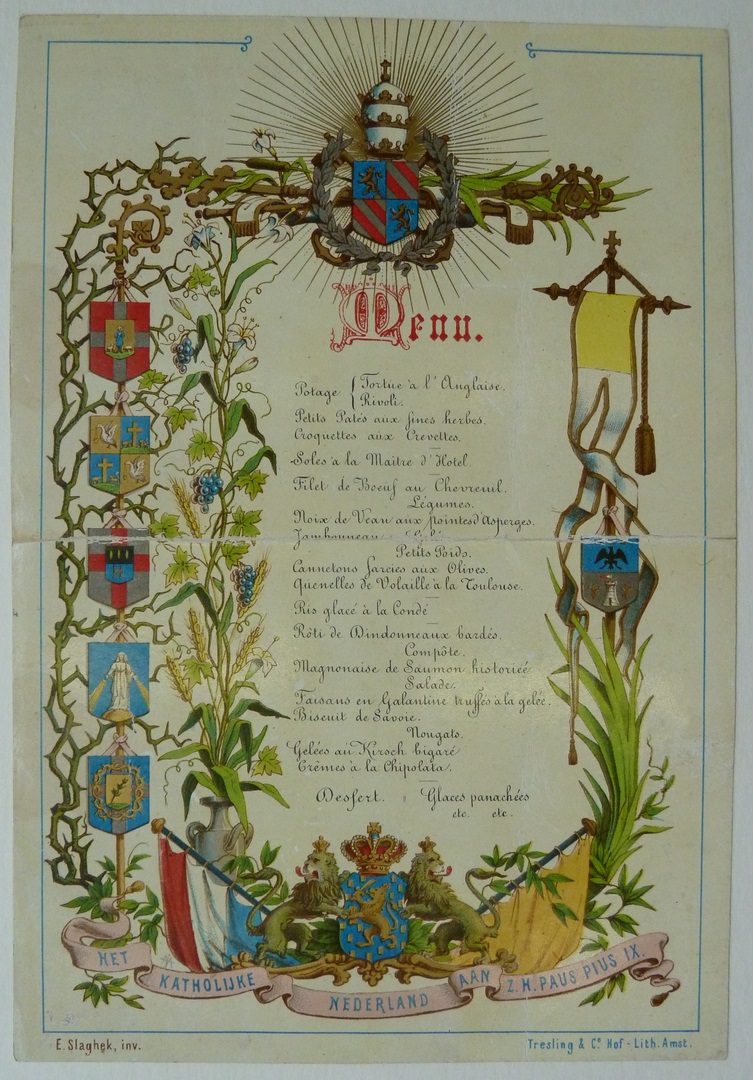 Menu.
Potage { Tortue à l'Anglaise.
Rivoli.
Petits Patés aux fines herbes.
Croquettes aux Crevettes.
Soles à la Maître d'Hotel.
Filet de Boeuf au Chevreuil.
Légumes.
Noix de Veau aux pointes d'Asperges.
Jambonneau
Petits Poids.
Cannetons farcies aux Olives.
Quenelles de Volaille à la Toulouse.
Ris glacé à la Condé
Rôti de Dindonneaux bardés.
Compôte.
Magnonaise de Saumon historieé
Salade.
Faisans en Galantine truffés à la gelée.
Biscuit de Savoie.
Nougats.
Gelées au Kirsch bigaré
Crêmes à la Chipolata.
Desfert. Glaces panachées
etc. etc.
HET KATHOLIJKE NEDERLAND AAN Z.H. PAUS PIUS IX.
E. Slaghek, inv. Tresling & Co. Hof-Lith. Amst.